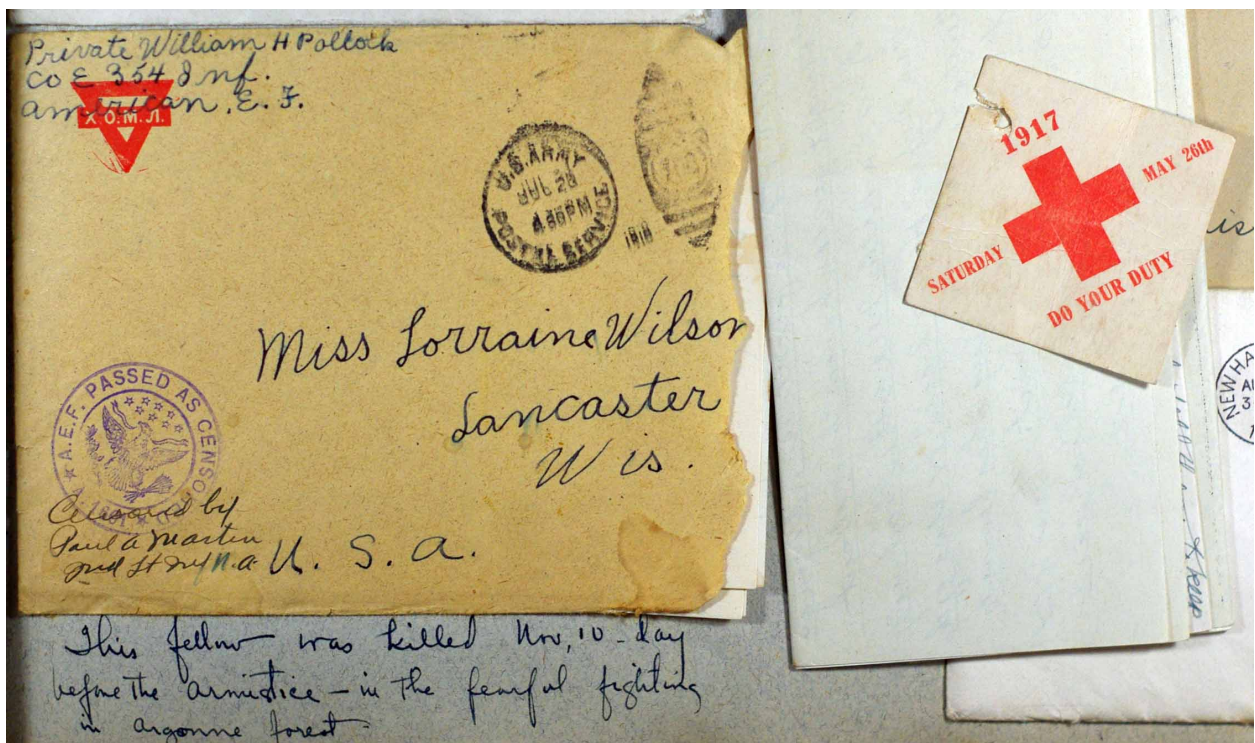 Private William H Pollock
Co E 354 Inf.
American E. F.
X.O.M.Л.
U.S. ARMY
POSTAL SERVICE
1918
Miss Lorraine Wilson
Lancaster
Wis.
U. S. A.
A.E.F. PASSED AS CENSORED
Censored by
Paul A Martin
2nd Lt Inf N.A.
This fellow was killed Nov, 10 - day
before the armistice - in the fearful fighting
in argonne forest
1917
MAY 26th
SATURDAY
DO YOUR DUTY
is
NEW HA